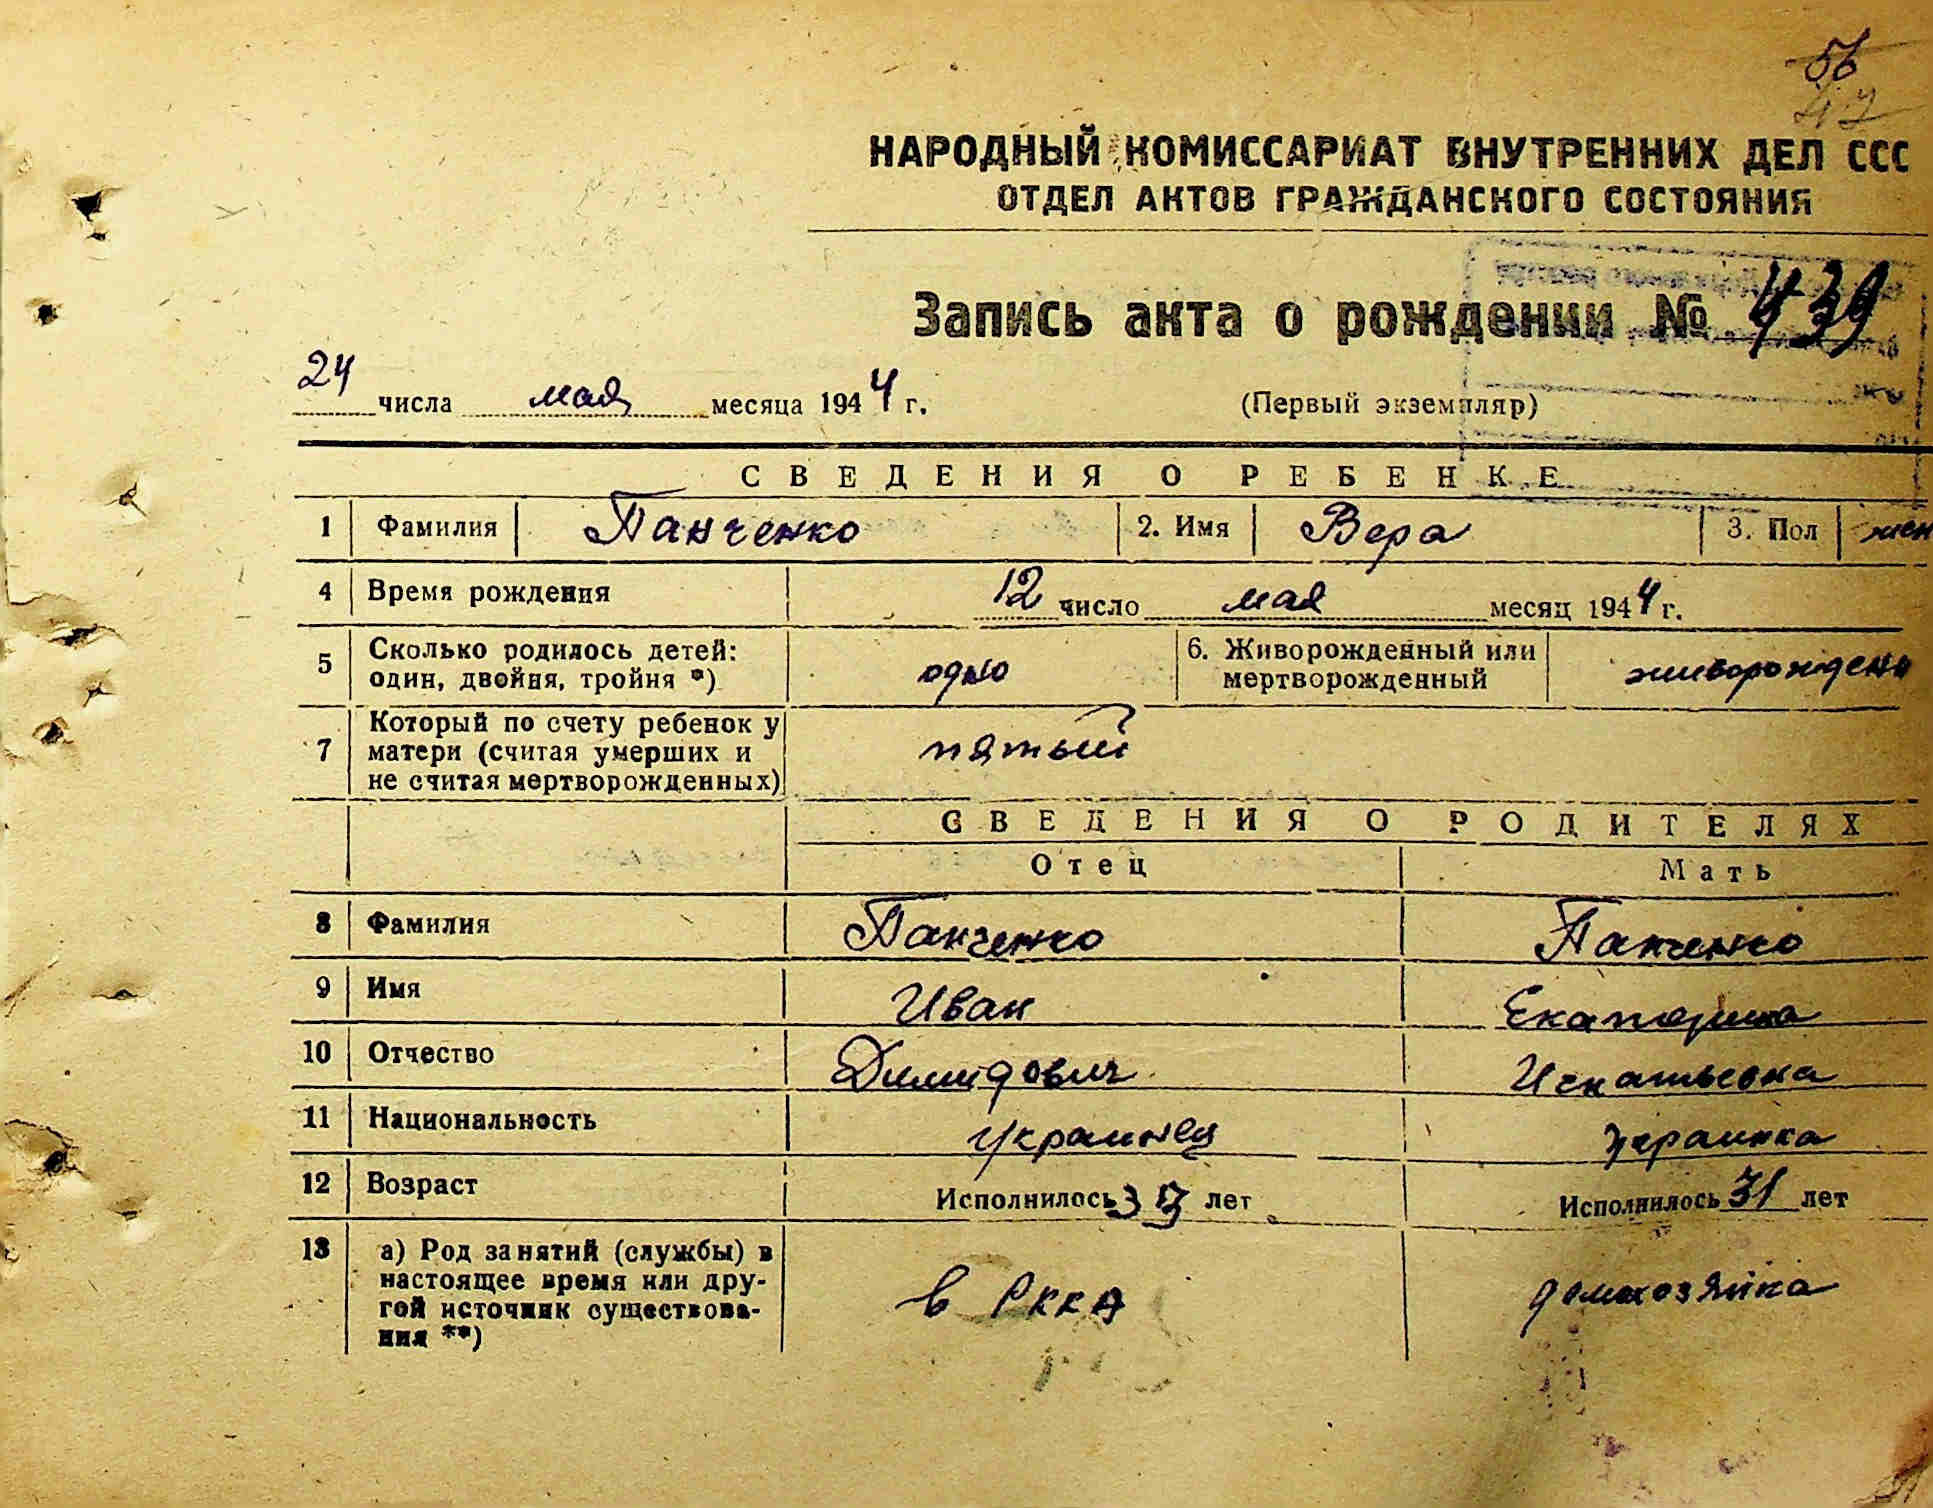 56
42
НАРОДНЫЙ КОМИССАРИАТ ВНУТРЕННИХ ДЕЛ ССС
ОТДЕЛ АКТОВ ГРАЖДАНСКОГО СОСТОЯНИЯ
Запись акта о рождении № 439
24 числа мая месяца 1944 г. (Первый экземпляр)
СВЕДЕНИЯ О РЕБЕНКЕ
1 Фамилия Панченко 2. Имя Вера 3. Пол жен
4 Время рождения 12 число мая месяц 1944 г.
5 Сколько родилось детей: один, двойня, тройня *) одно 6. Живорожденный или мертворожденный живорожден
7 Который по счету ребенок у матери (считая умерших и не считая мертворожденных) пятый
СВЕДЕНИЯ О РОДИТЕЛЯХ
Отец Мать
8 Фамилия Панченко Панченко
9 Имя Иван Екатерина
10 Отчество Димидович Игнатьевна
11 Национальность украинец украинка
12 Возраст Исполнилось лет Исполнилось 31 лет
13 а) Род занятий (службы) в настоящее время или дру-
гой источник существова-
ния **) в РККА домохозяйка